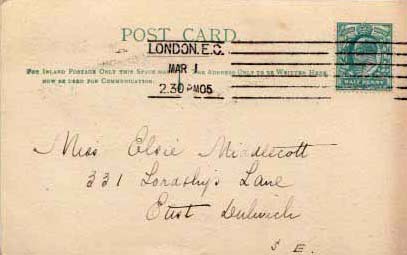 POST CARD.
LONDON.E.C.
MAR 1
2.30 PM 05
FOR INLAND POSTAGE ONLY THIS SPACE MAY THE ADDRESS ONLY TO BE WRITTEN HERE.
NOW BE USED FOR COMMUNICATION.
HALF PENNY
Miss Elsie Middlecott
331 Lordship Lane
East Dulwich
S E.